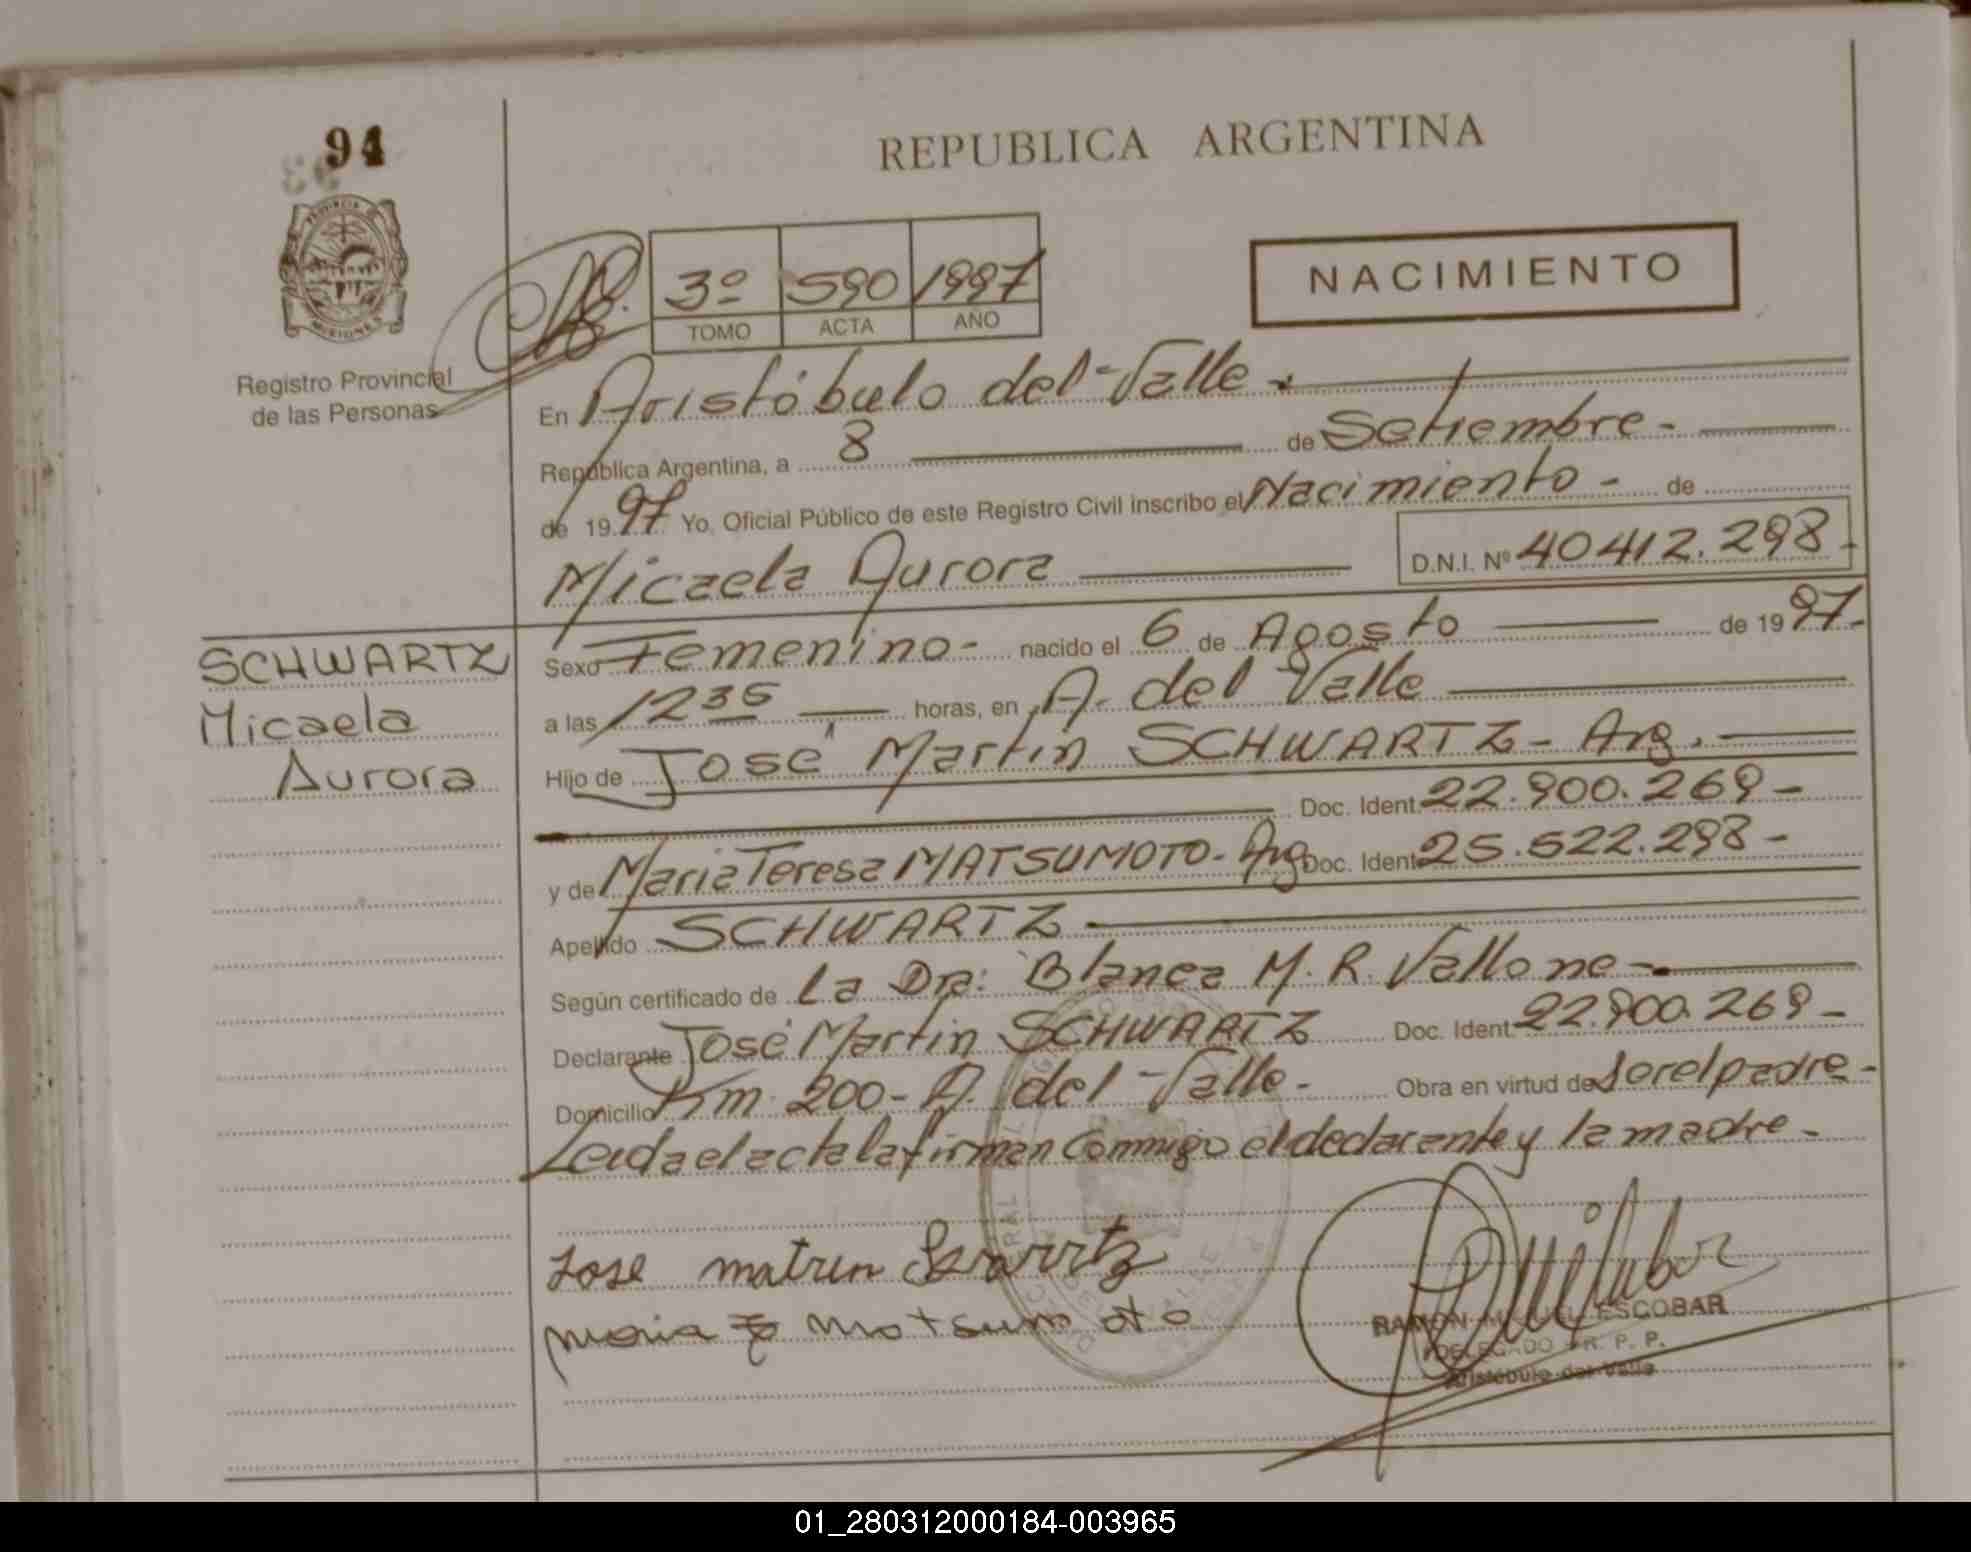 94
REPUBLICA ARGENTINA
PROVINCIA DE
MISIONES
Registro Provincial
de las Personas
3º 590 1997
TOMO ACTA AÑO
NACIMIENTO
En Aristóbulo del Valle.
República Argentina, a 8 de Setiembre -
de 1997 Yo, Oficial Público de este Registro Civil inscribo el Nacimiento - de
Micaela Aurora D.N.I. Nº 40412.298 -
SCHWARTZ
Micaela
Aurora
Sexo Femenino - nacido el 6 de Agosto de 1997-
a las 12 35 horas, en A. del Valle
Hijo de José Martin SCHWARTZ - Arg.
Doc. Ident. 22.900.269 -
y de Maria Teresa MATSUMOTO - Arg Doc. Ident. 25.522.298 -
Apellido SCHWARTZ
Según certificado de La Dra: Blanca M. R. Vallone -
Declarante José Martin SCHWARTZ Doc. Ident. 22.900.269 -
Domicilio Km. 200 - A. del Valle - Obra en virtud de ser el padre -
Leida el acta la firman Conmigo el declarante y la madre -
Jose matrin
maria matsumoto
RAMON MIGUEL ESCOBAR
DELEGADO R. P. P.
Aristóbulo del Valle
01_280312000184-003965